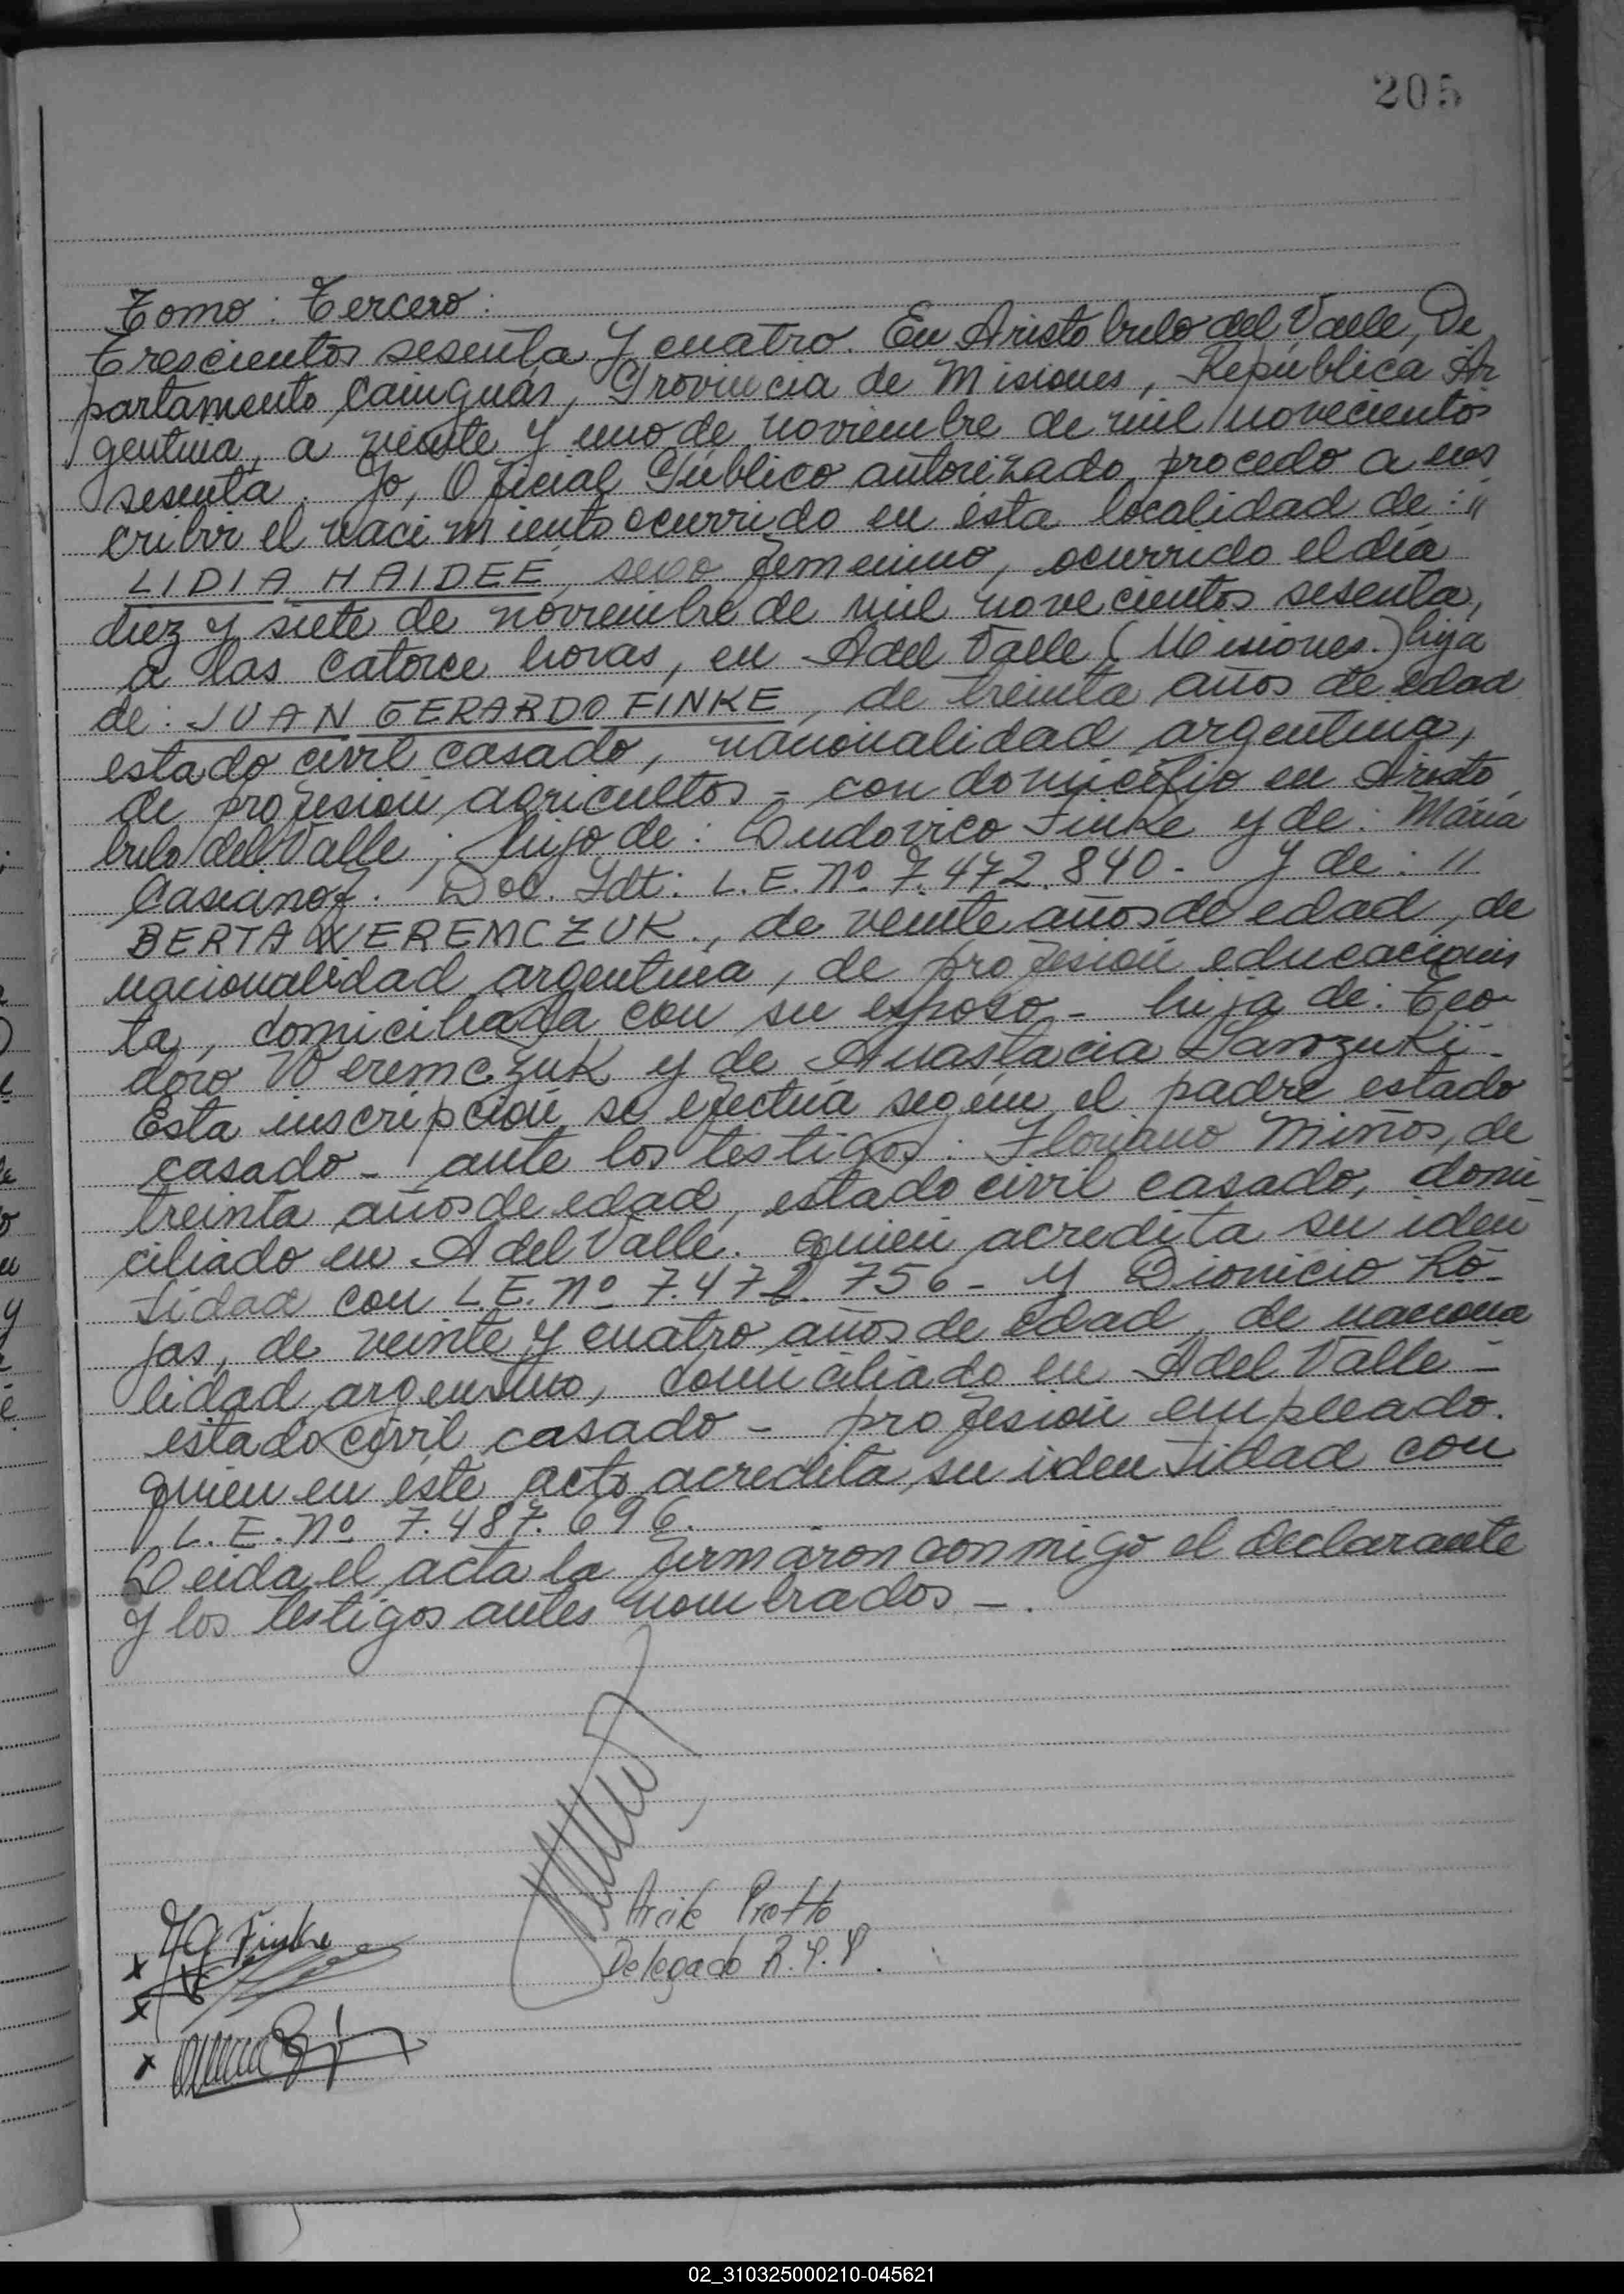 205
Tomo: Tercero:
Trescientos sesenta y cuatro. En Aristobulo del Valle, De
partamento Cainguás, Provincia de Misiones, República Ar
gentina, a veinte y uno de noviembre de mil novecientos
sesenta. Yo, Oficial Público autorizado procedo a ins
cribir el nacimiento ocurrido en ésta localidad de: "
LIDIA HAIDEE, sexo femenino, ocurrido el día
diez y siete de noviembre de mil novecientos sesenta,
a las catorce horas, en A del Valle (Misiones.) hija
de: JUAN GERARDO FINKE, de treinta años de edad
estado civil casado, nacionalidad argentina,
de profesión agricultos - con domicilio en Aristo
bulo del Valle, hijo de: Ludovico Finke y de: María
Casianoz. Doc. Idt: L.E. Nº 7.472.840 - y de: "
BERTA WEREMCZUK., de veinte años de edad, de
nacionalidad argentina, de profesión educacionis
ta, domiciliada con su esposo - hija de: Teo-
doro Weremczuk y de Anastacia
Esta inscripción se efectúa según el padre estado
casado - ante los testigos: Floriano Miños, de
treinta años de edad, estado civil casado, domi
ciliado en A del Valle. quien acredita su iden
tidad con L.E. Nº 7.472.756 - y Dionicio Ro-
jas, de veinte y cuatro años de edad, de naciona
lidad argentino, domiciliado en A del Valle -
estado civil casado - profesión empleado.
quien en éste acto acredita su identidad con
L.E. Nº 7.487.696.
Leida el acta la firmaron conmigo el declarante
y los testigos antes nombrados -.
Delegado R.P.P.
JG Finke
02_310325000210-045621